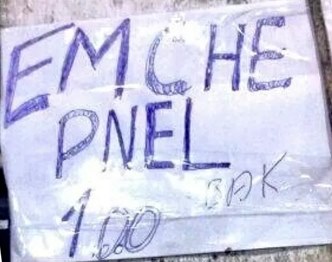 EMCHE
PNEL
1,00 BAK